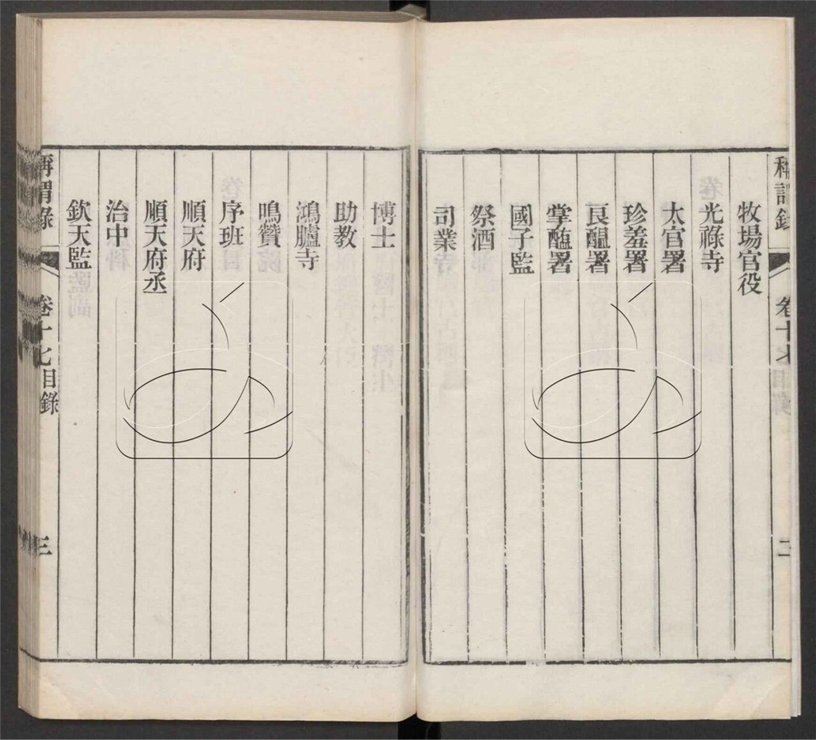 稱謂錄 卷十七目錄 二
牧場官役
光祿寺
太官署
珍羞署
良醞署
掌醢署
國子監
祭酒
司業
博士
助教
鴻臚寺
鳴贊
序班
順天府
順天府丞
治中
欽天監
稱謂錄 卷十七目錄 三